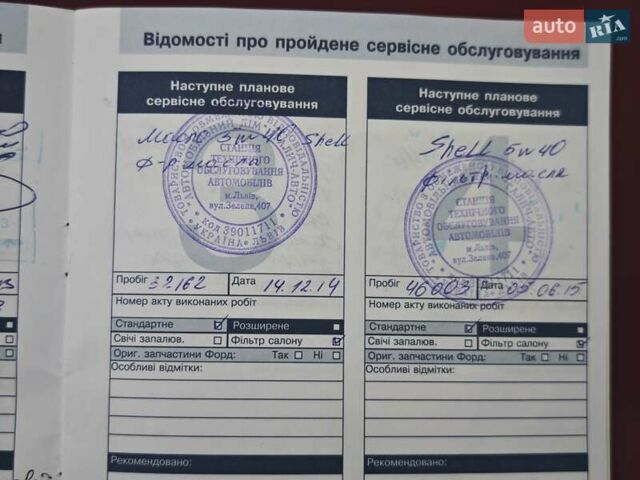 auto RIA.com
Відомості про пройдене сервісне обслуговування
Наступне планове
сервісне обслуговування
Масло 5w40 Shell
ф-р масла
СТАНЦІЯ
ТЕХНІЧНОГО
ОБСЛУГОВУВАННЯ
АВТОМОБІЛІВ
м.Львів,
вул.Зелена,407
код 39011711
УКРАЇНА ЛЬВІВ
Пробіг 32162 Дата 14.12.14
Номер акту виконаних робіт
Стандартне Розширене
Свічі запалюв. Фільтр салону
Ориг. запчастини Форд: Так Ні
Особливі відмітки:
Рекомендовано:
Наступне планове
сервісне обслуговування
Shell 5w40
фільтр масла
СТАНЦІЯ
ТЕХНІЧНОГО
ОБСЛУГОВУВАННЯ
АВТОМОБІЛІВ
м.Львів,
вул.Зелена,407
Пробіг 46003 Дата 05.06.15
Номер акту виконаних робіт
Стандартне Розширене
Свічі запалюв. Фільтр салону
Ориг. запчастини Форд: Так Ні
Особливі відмітки:
Рекомендовано: